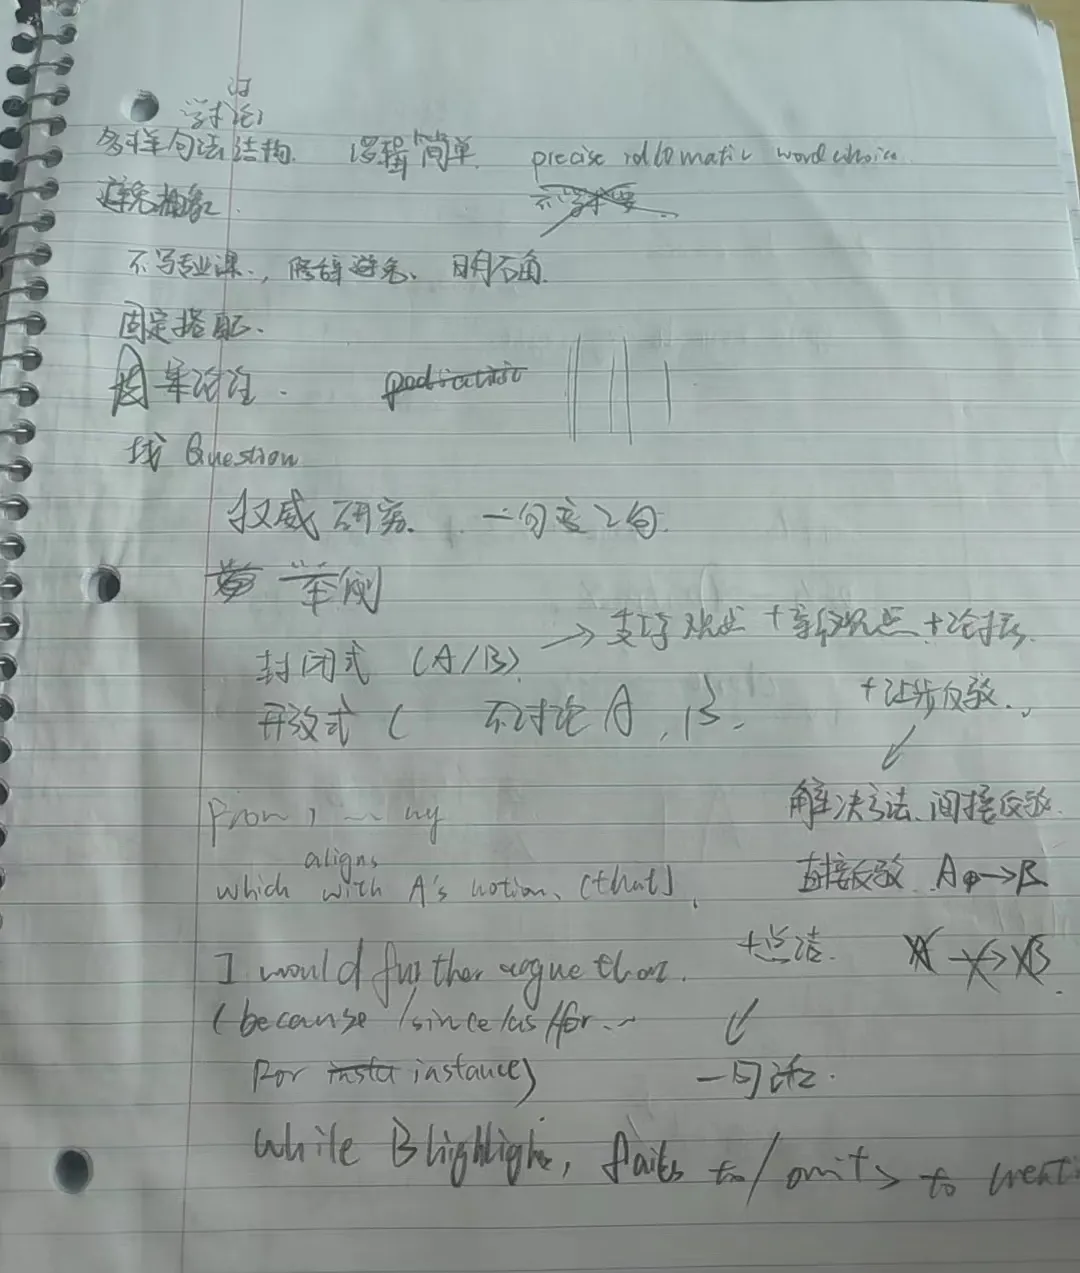 学术讨论
多样句法结构. 逻辑简单. precise idiomatic word choice
避免抽象.
不写专业课., 修辞避免、明确.
固定搭配.
讨论.
找 Question
权威研究. 一句变2句.
举例
封闭式 (A/B) → 支持观点 + 新观点 + 论据.
开放式 ( 不讨论A, B. + 让步反驳.
解决方法、间接反驳.
From, ... my
aligns
which with A's notion, (that),
直接反驳 A → B
I would further argue that. + 总结.
(because/since/as/for...
For instance) 一句话.
While B highlights, fails to / omits to